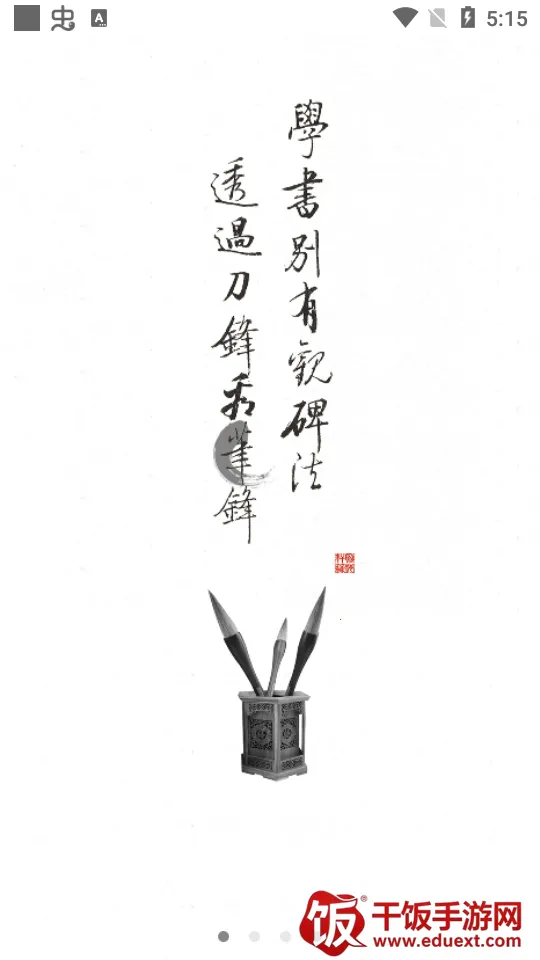 5:15
A
學書别有觀碑法
透過刀鋒看筆鋒
饭®
干饭手游网
www.eduext.com